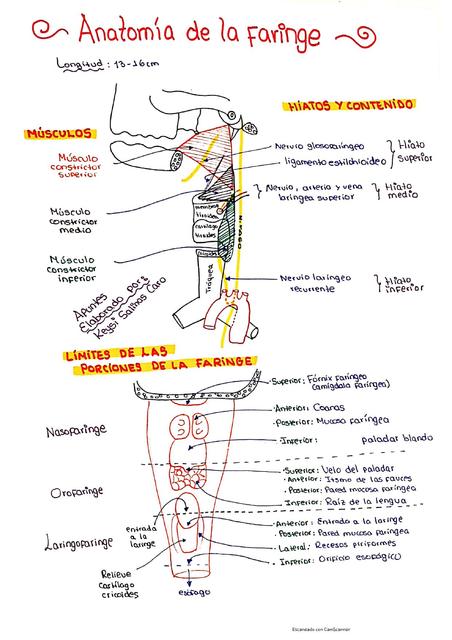 Anatomía de la faringe
Longitud: 13-16cm
HIATOS Y CONTENIDO
MÚSCULOS
Músculo
constrictor
superior
Músculo
constrictor
medio
Músculo
constrictor
inferior
Nervio glosofaríngeo
ligamento estilohioideo
Hiato
superior
Nervio, arteria y vena
laríngea superior
Hiato
medio
Nervio laríngeo
recurrente
Hiato
inferior
cartílago
tiroides
Tráquea
Apuntes
Elaborado por:
Keysi Salinas Caro
LÍMITES DE LAS
PORCIONES DE LA FARINGE
Nasofaringe
Superior: Fórnix faríngeo
(amígdala faríngea)
Anterior: Coanas
Posterior: Mucosa faríngea
Inferior: paladar blando
Orofaringe
Superior: Velo del paladar
Anterior: Itsmo de las fauces
Posterior: Pared mucosa faríngea
Inferior: Raíz de la lengua
Laringofaringe
entrada
a la
laringe
Anterior: Entrada a la laringe
Posterior: Pared mucosa faríngea
Lateral: Recesos piriformes
Inferior: Orificio esofágico
Relieve
cartílago
cricoides
esófago
Escaneado con CamScanner